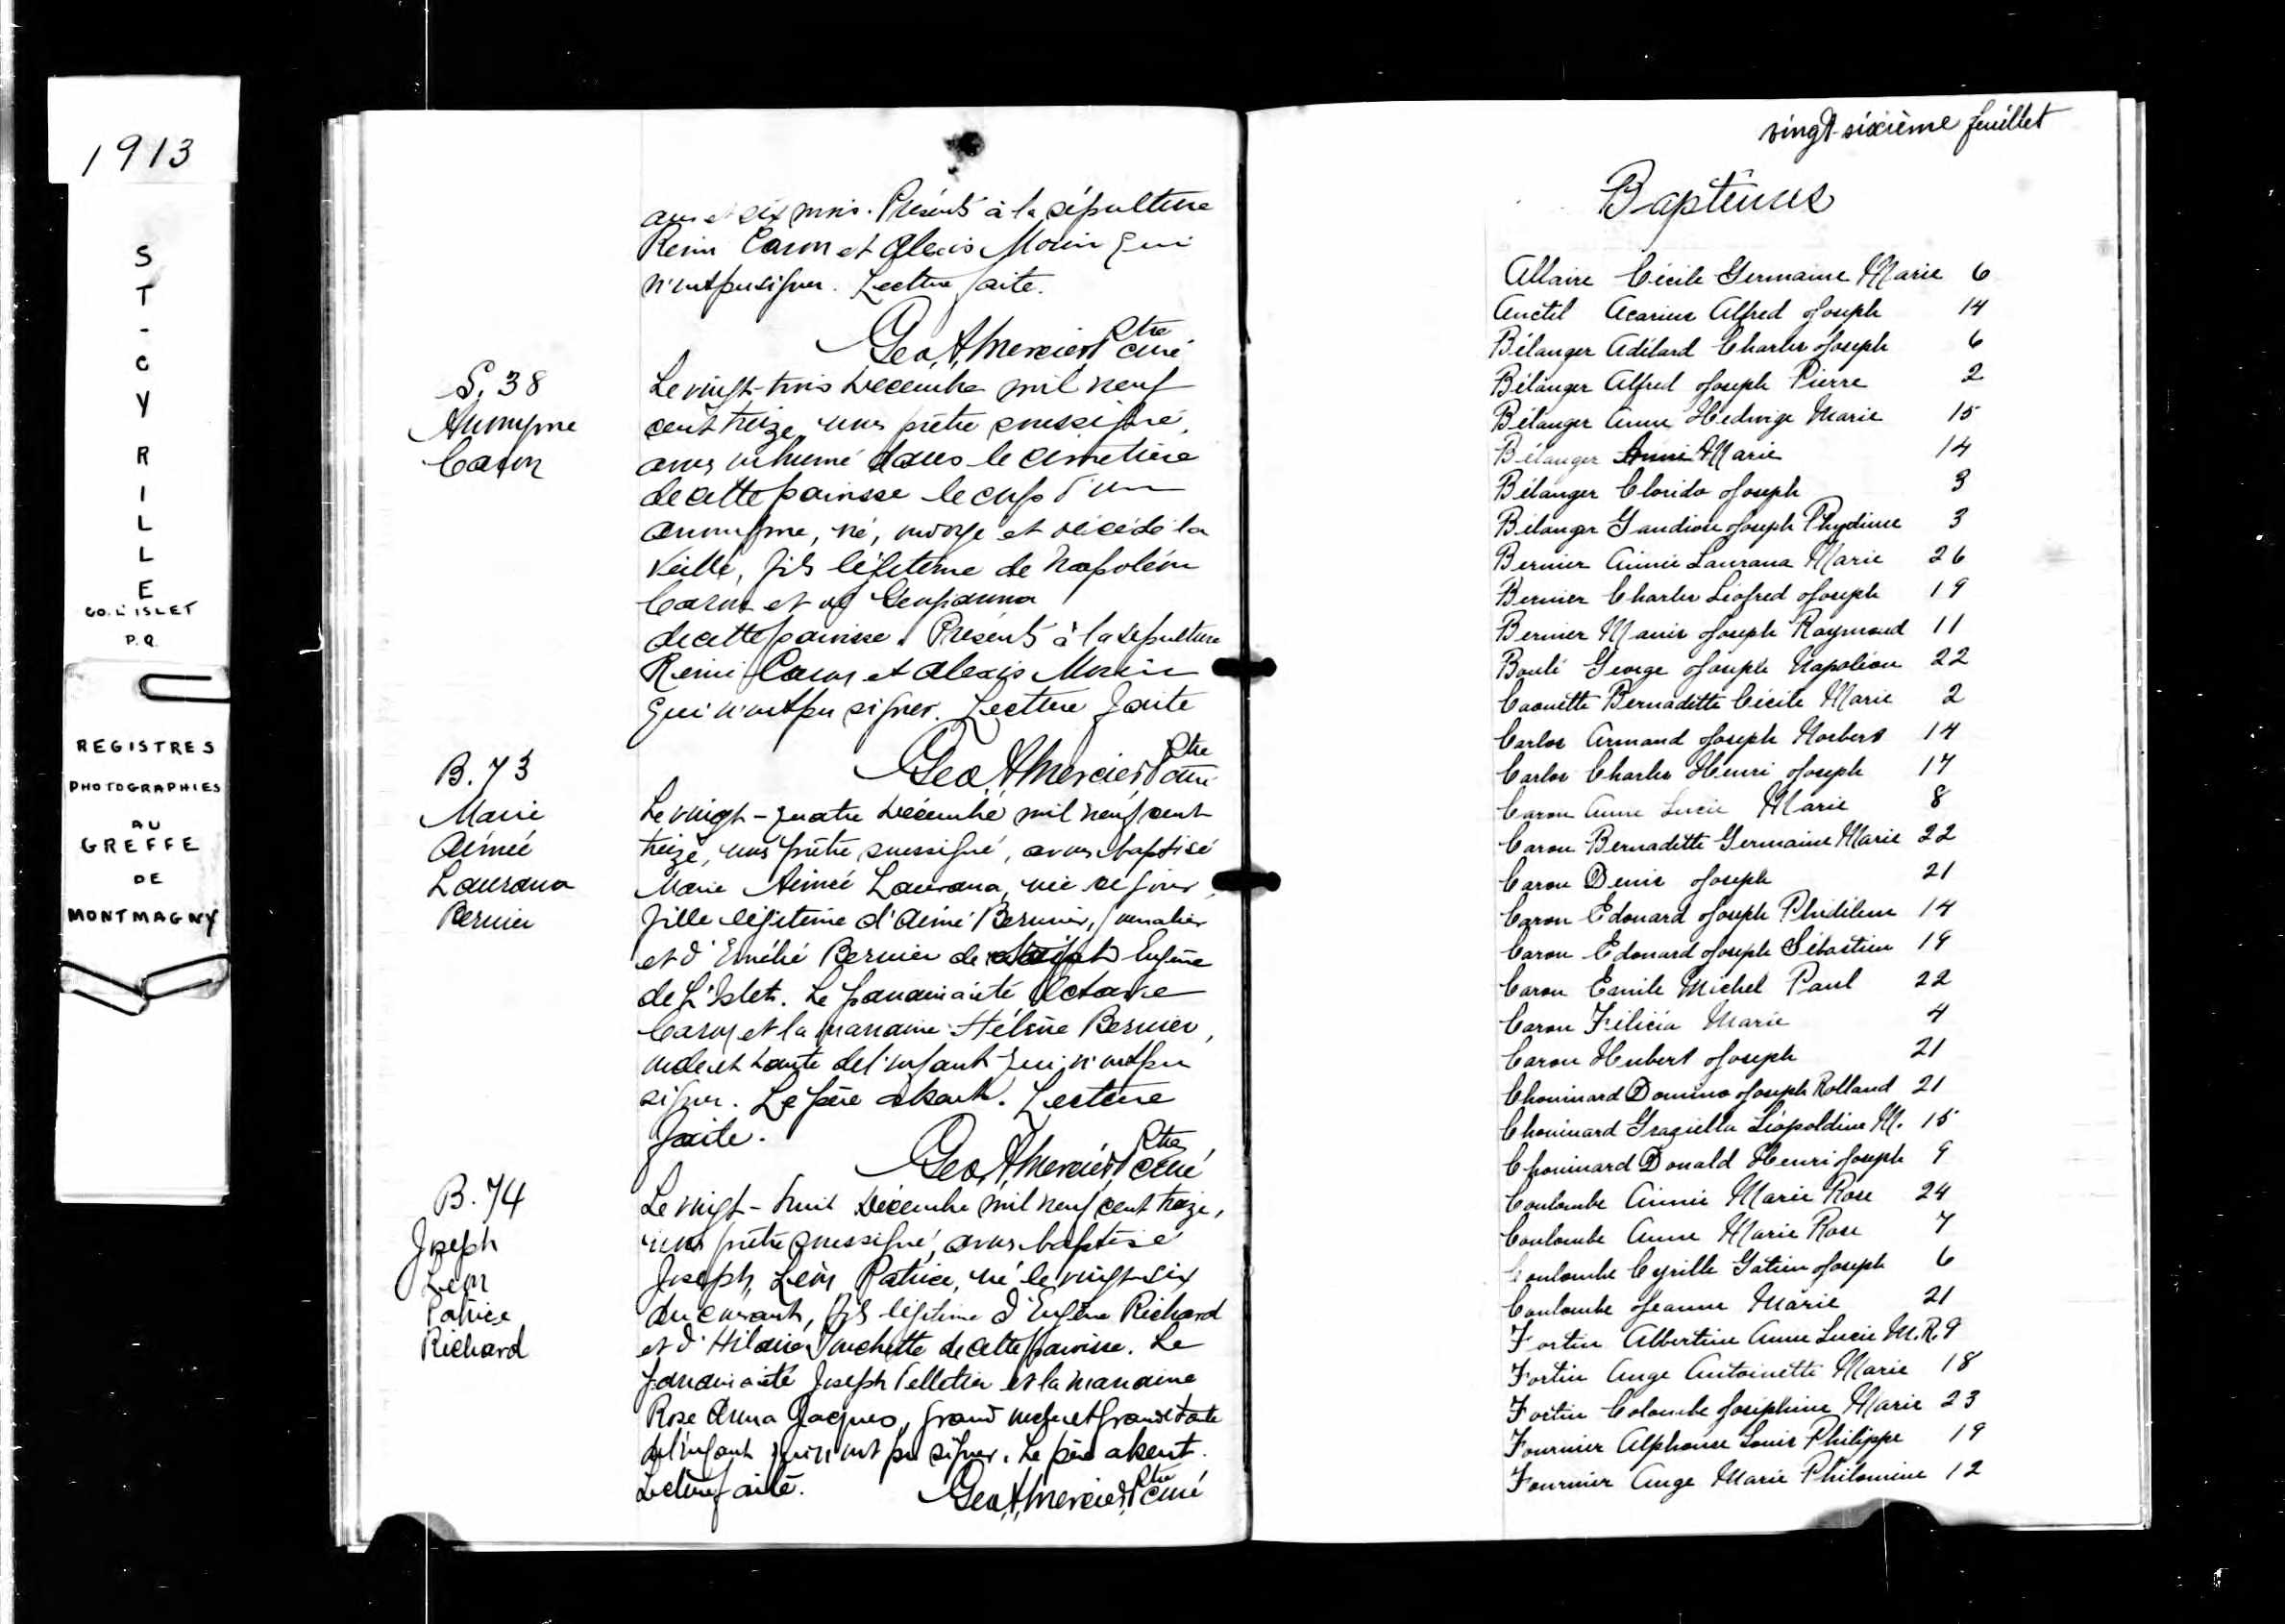 1913
ST-CYRILLE
CO. L'ISLET
P.Q.
REGISTRES
PHOTOGRAPHIES
AU
GREFFE
DE
MONTMAGNY
ans et six mois. Présents à la sépulture
Rémi Caron et Alexis Morin qui
n'ont pu signer. Lecture faite.
Geo. A. Mercier Ptre curé
S. 38
Anonyme
Caron
Le vingt-trois Décembre mil neuf
cent treize, nous prêtre soussigné,
avons inhumé dans le cimetière
de cette paroisse le corps d'un
anonyme, né, ondoyé et décédé la
veille, fils légitime de Napoléon
Caron et de Georgianna
de cette paroisse. Présents à la sépulture
Rémi Caron et Alexis Morin
qui n'ont pu signer. Lecture faite
Geo. A. Mercier Ptre curé
B. 73
Marie
Aimée
Laurana
Bernier
Le vingt-quatre Décembre mil neuf cent
treize, nous prêtre soussigné, avons baptisé
Marie Aimée Laurana, née ce jour,
fille légitime d'Aimé Bernier, journalier
et d'Emélie Bernier de Eugène
de L'Islet. Le parrain a été Octave
Caron et la marraine Hélène Bernier,
oncle et tante de l'enfant qui n'ont pu
signer. Le père absent. Lecture
faite.
Geo. A. Mercier Ptre curé
B. 74
Joseph
Léon
Patrice
Richard
Le vingt-huit Décembre mil neuf cent treize,
nous prêtre soussigné, avons baptisé
Joseph, Léon Patrice, né le vingt-six
du courant, fils légitime d'Eugène Richard
et d'Hilaire Pouchette de cette paroisse. Le
parrain a été Joseph Pelletier et la marraine
Rose Anna Jacques, grand oncle et grande tante
de l'enfant qui n'ont pu signer. Le père absent.
Lecture faite.
Geo. A. Mercier Ptre curé
vingt-sixième feuillet
Baptêmes
Allaire Cécile Germaine Marie 6
Anctil Acarius Alfred Joseph 14
Bélanger Adélard Charles Joseph 6
Bélanger Alfred Joseph Pierre 2
Bélanger Anna Hedwige Marie 15
Bélanger Marie 14
Bélanger Clorido Joseph 3
Bélanger Gaudiose Joseph Phydime 3
Bernier Aimée Laurana Marie 26
Bernier Charles Léofred Joseph 19
Bernier Mauis Joseph Raymond 11
Boulé George Joseph Napoléon 22
Caouette Bernadette Cécile Marie 2
Carlos Armand Joseph Norbert 14
Carlos Charles Henri Joseph 17
Caron Anne Lucie Marie 8
Caron Bernadette Germaine Marie 22
Caron Denis Joseph 21
Caron Edouard Joseph Phidilem 14
Caron Edouard Joseph Sébastien 19
Caron Emile Michel Paul 22
Caron Félicia Marie 4
Caron Hubert Joseph 21
Chouinard Domino Joseph Rolland 21
Chouinard Graziella Léopoldine M. 15
Chouinard Donald Henri Joseph 9
Coulombe Aimée Marie Rose 24
Coulombe Anna Marie Rose 7
Coulombe Cyrille Gatien Joseph 6
Coulombe Jeanne Marie 21
Fortin Albertine Anne Lucie M.R. 9
Fortin Ange Antoinette Marie 18
Fortin Colombe Joséphine Marie 23
Fournier Alphonse Louis Philippe 19
Fournier Ange Marie Philomène 12